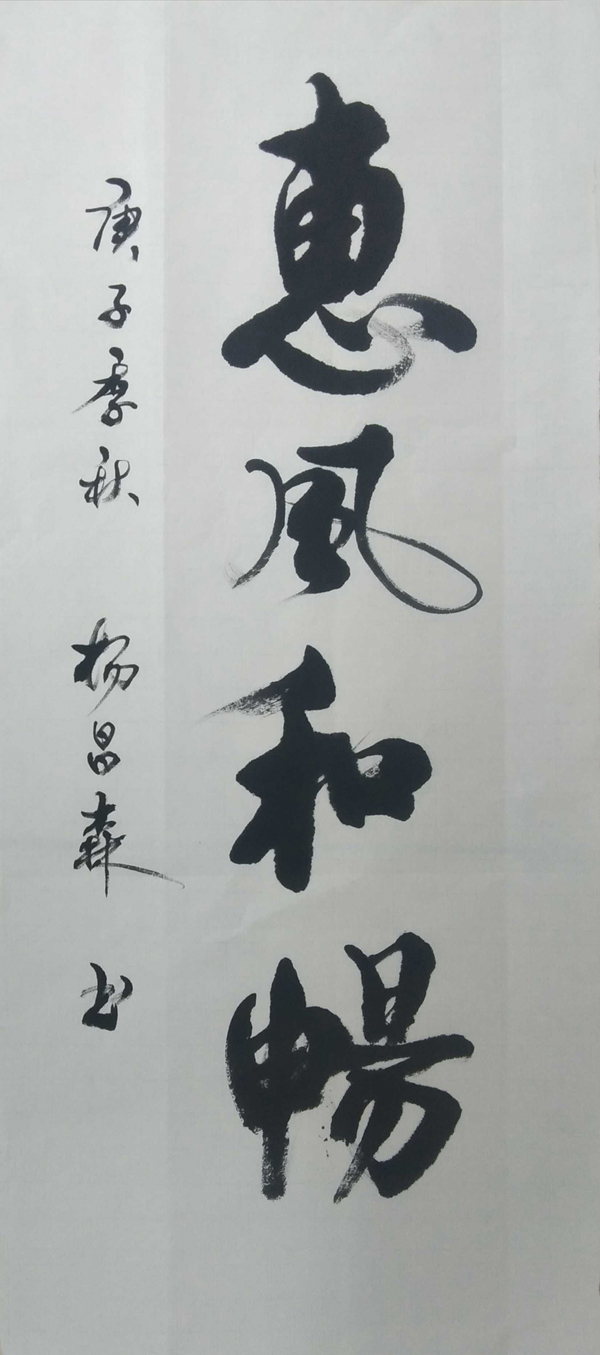 惠風和暢
庚子季秋 杨昌森 书